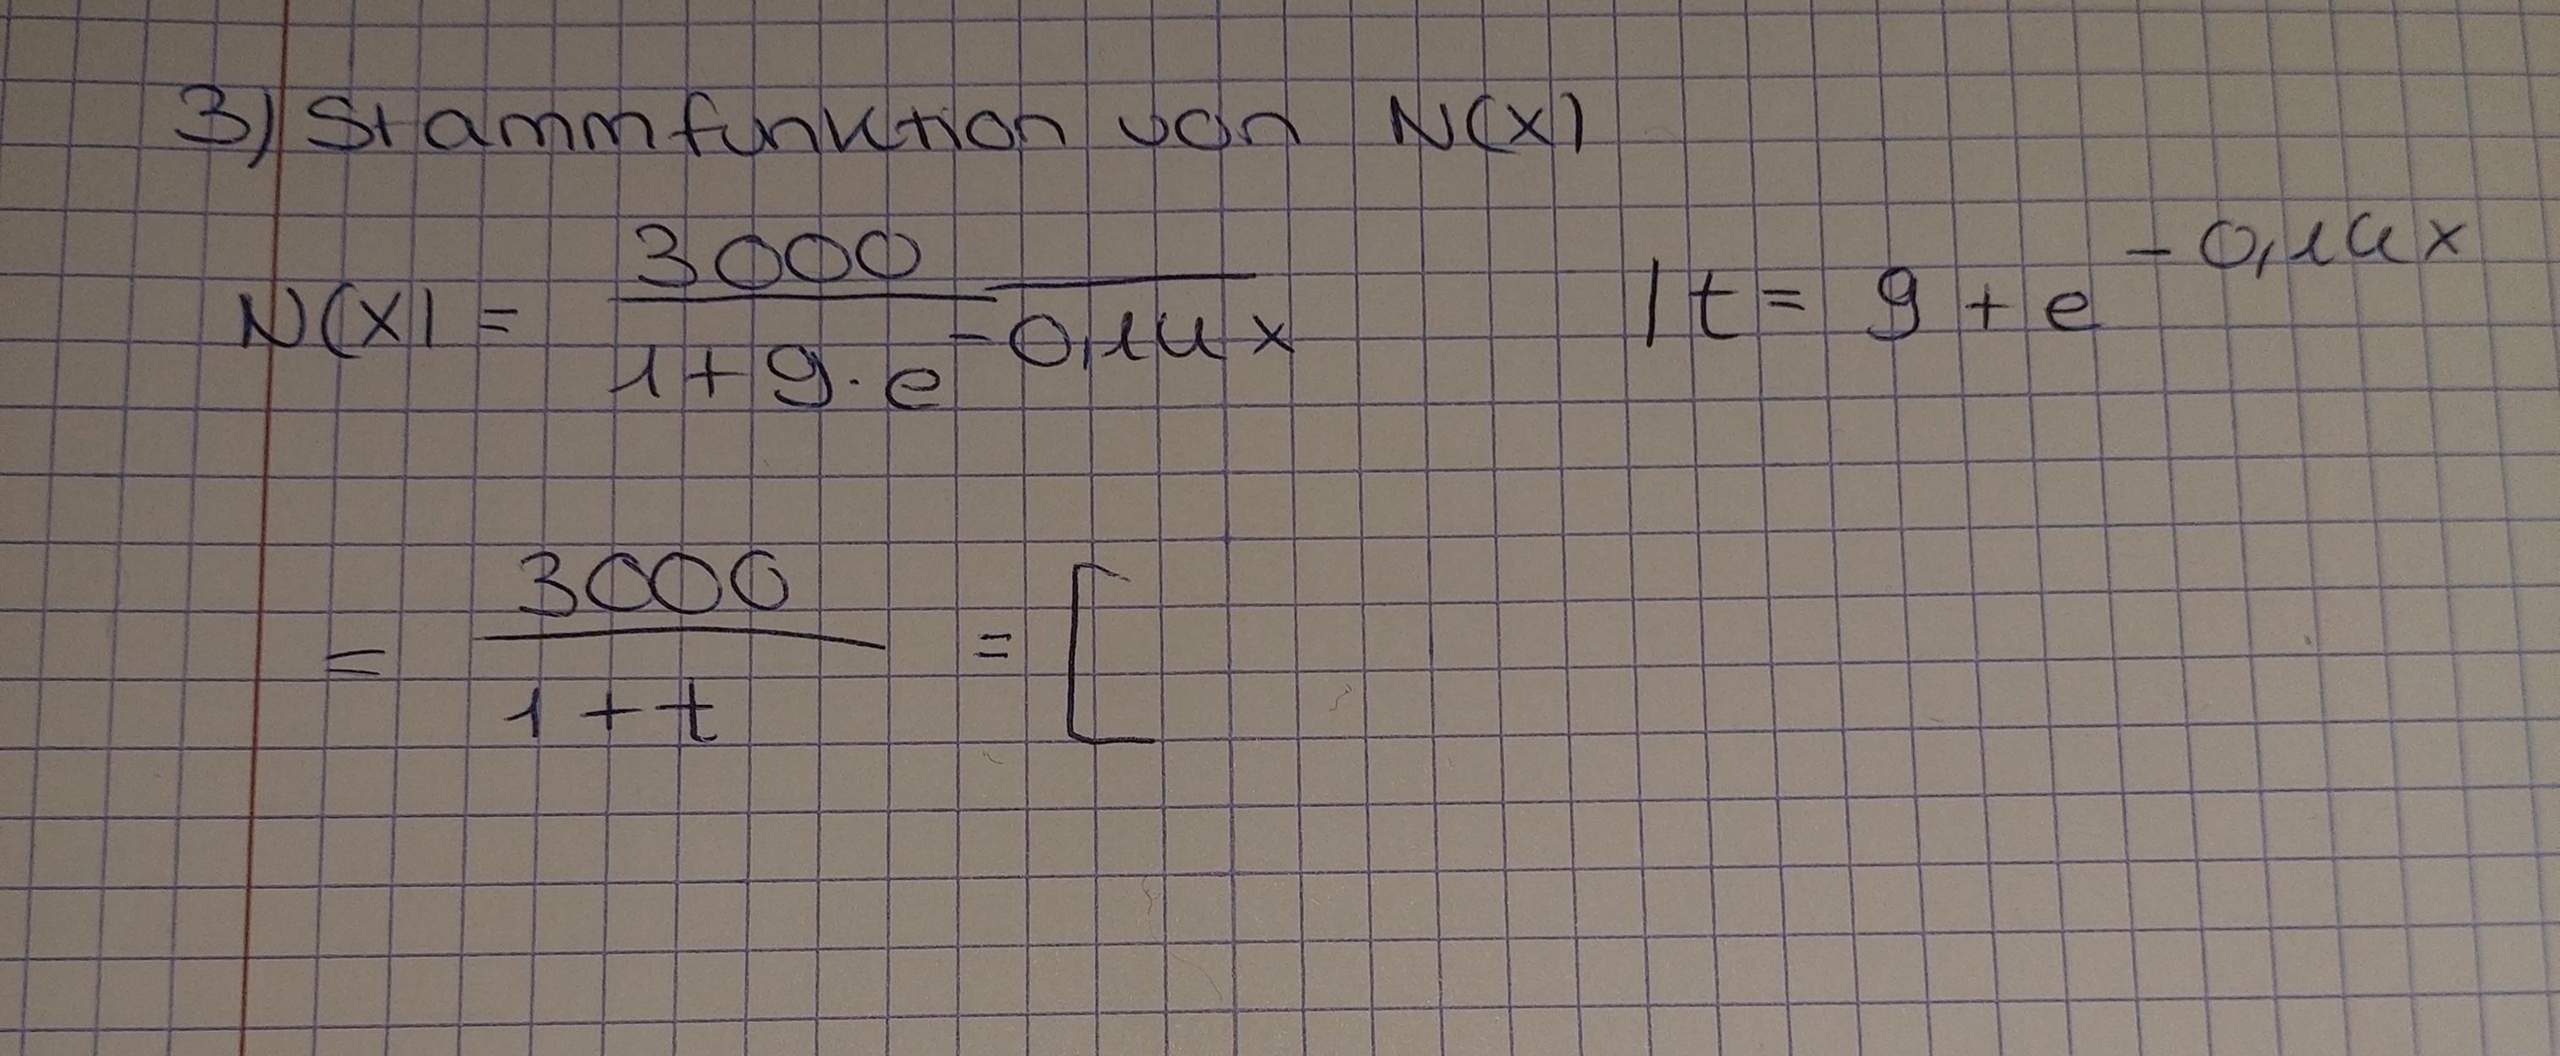 3) Stammfunktion von N(x)
N(x) = 3000 / (1 + 9 · e^(-0,14x)) | t = 9 + e^(-0,14x)
= 3000 / (1 + t) = [